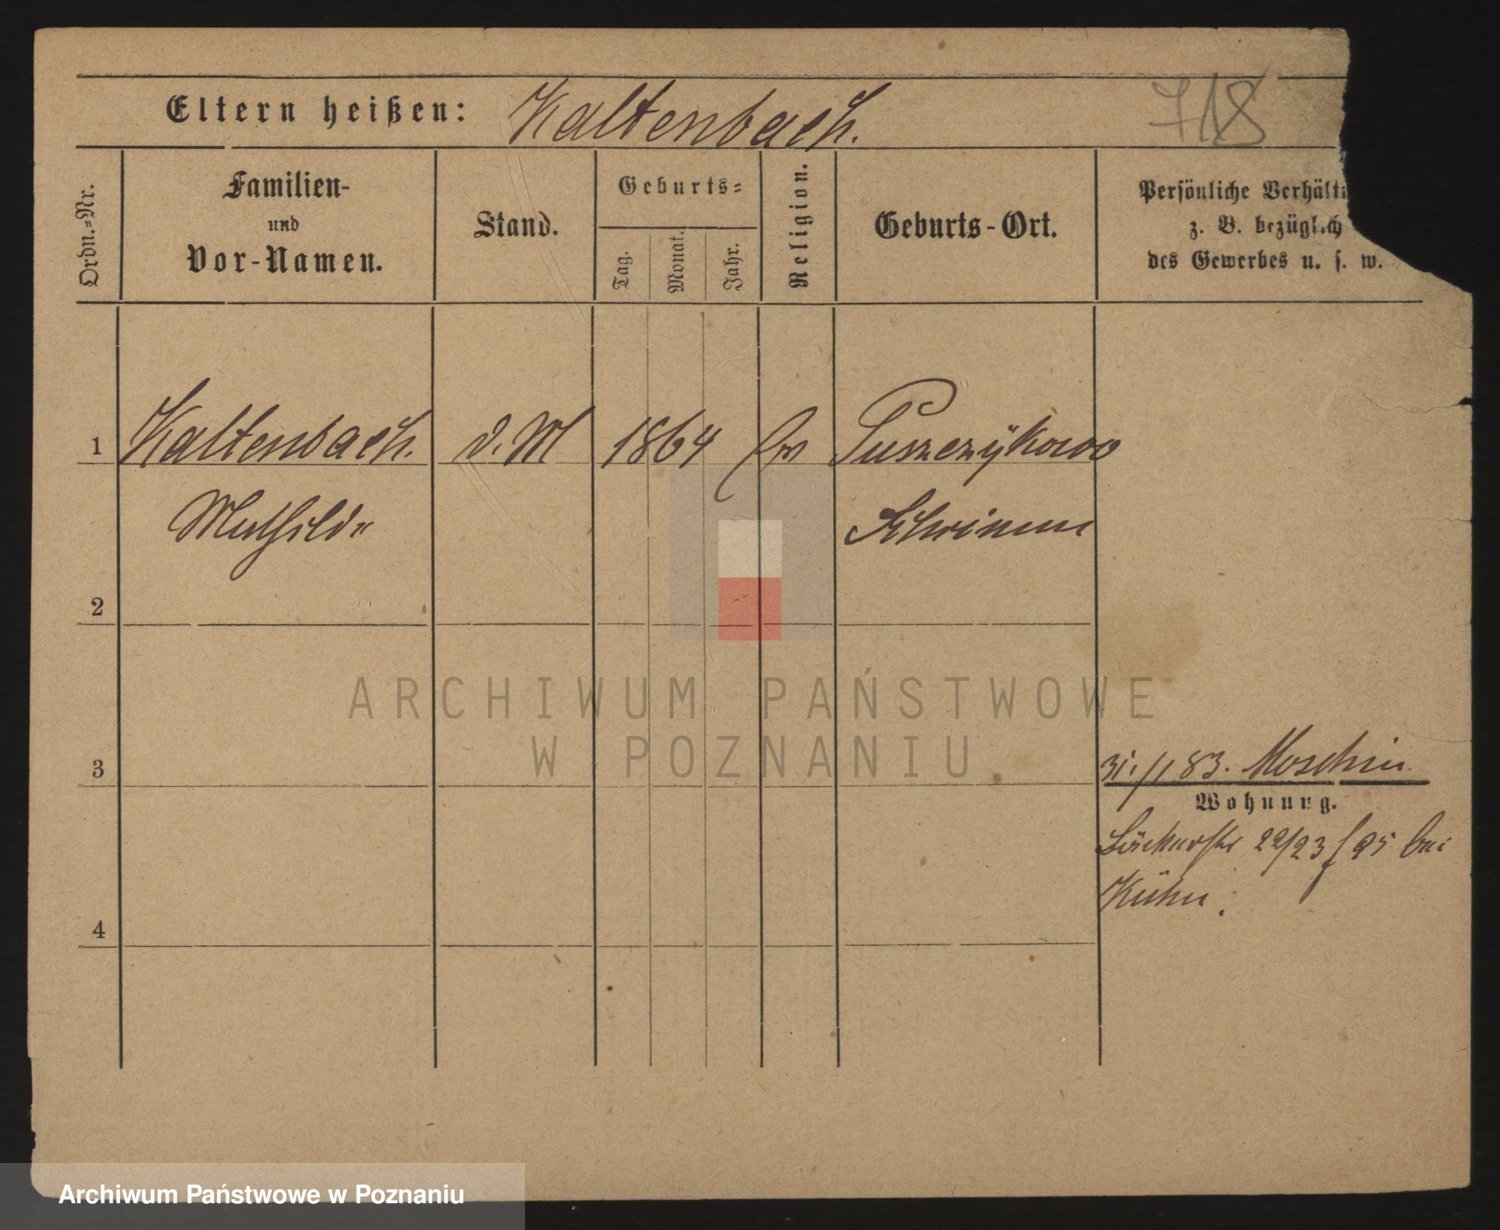 Eltern heißen: Kaltenbach. 718
Ordn.=Nr.
Familien-
und
Vor-Namen.
Stand.
Geburts=
Tag.
Monat.
Jahr.
Religion.
Geburts-Ort.
Persönliche Verhälti
z. B. bezüglich
des Gewerbes u. s. w.
1 Kaltenbach. d. M 1864 Puszczykowo
Mathilde Schrimm
2
3
4
31./1 83. Moschin.
Wohnung.
22/23 95 bei
Kühn.
ARCHIWUM PAŃSTWOWE
W POZNANIU
Archiwum Państwowe w Poznaniu